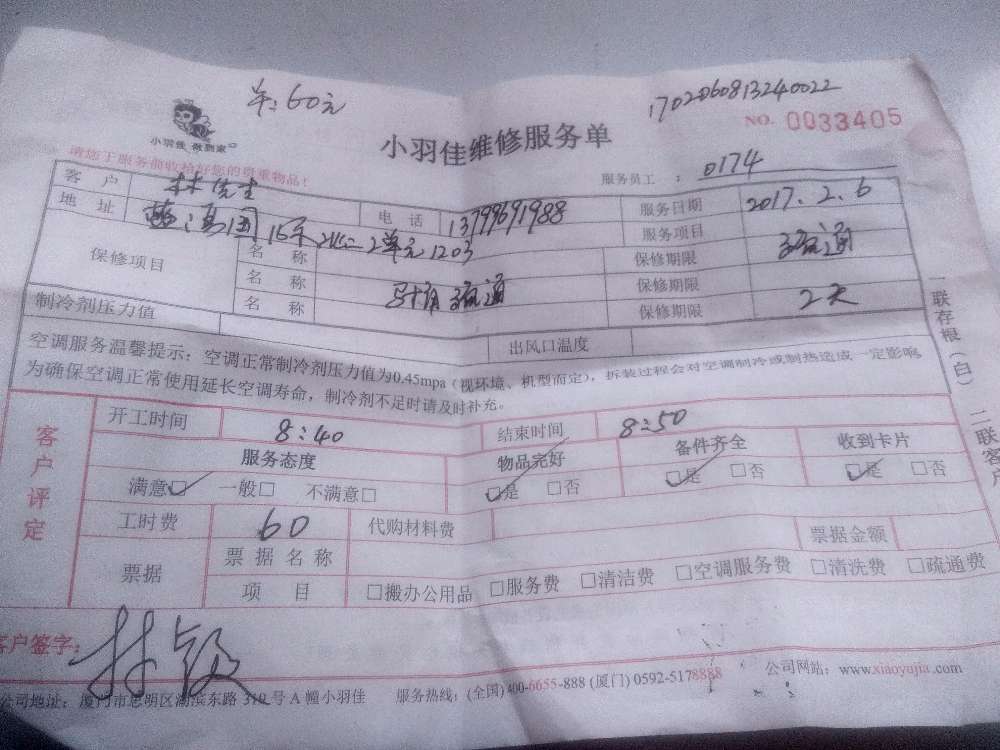 单:60元
1702060813240022
小羽佳 做到家
小羽佳维修服务单
NO. 0033405
请您于服务前收拾好您的贵重物品!
服务员工 : 0174
客户 林先生 电话 13799691988 服务日期 2017.2.6
地址 16 2单元1203 服务项目 疏通
保修项目 名称 保修期限
名称 马桶疏通 保修期限
名称 保修期限 2天
制冷剂压力值 出风口温度
空调服务温馨提示:空调正常制冷剂压力值为0.45mpa(视环境、机型而定),拆装过程会对空调制冷或制热造成一定影响
为确保空调正常使用延长空调寿命,制冷剂不足时请及时补充。
客户评定
开工时间 8:40 结束时间 8:50
服务态度 物品完好 备件齐全 收到卡片
满意□ 一般□ 不满意□ □是 □否 □是 □否 □是 □否
工时费 60 代购材料费 票据金额
票据 票据名称
项目 □搬办公用品 □服务费 □清洁费 □空调服务费 □清洗费 □疏通费
客户签字:
公司地址:厦门市思明区湖滨东路319号A幢小羽佳 服务热线:(全国)400-6655-888 (厦门) 0592-5178888 公司网站:www.xiaoyujia.com
一联存根(白) 二联客户